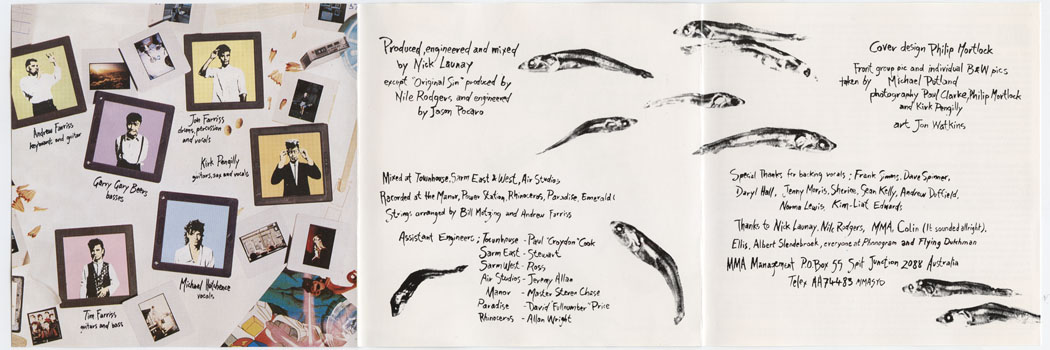 Andrew Farriss
keyboards and guitar
Jon Farriss
drums, percussion
and vocals
Garry Gary Beers
basses
Kirk Pengilly
guitars, sax and vocals
Michael Hutchence
vocals
Tim Farriss
guitars and bass
Produced, engineered and mixed
by Nick Launay
except "Original Sin" produced by
Nile Rodgers, and engineered
by Jason Pocaro
Mixed at Townhouse, Sarm East & West, Air Studios
Recorded at the Manor, Power Station, Rhinoceros, Paradise, Emerald C
Strings arranged by Bill Motzing and Andrew Farriss
Assistant Engineers; Townhouse - Paul "Croydon" Cook
Sarm East - Stewart
Sarm West - Ross
Air Studios - Jeremy Allan
Manor - Master Steven Chase
Paradise - David "Fullnumber" Price
Rhinoceros - Allan Wright
Cover design Philip Mortlock
Front group pic and individual B&W pics
taken by Michael Putland
photography Paul Clarke, Philip Mortlock
and Kirk Pengilly
art Jon Watkins
Special Thanks for backing vocals; Frank Simms, Dave Spinner,
Daryl Hall, Jenny Morris, Sherine, Sean Kelly, Andrew Duffield,
Norma Lewis, Kim-Liat Edwards
Thanks to Nick Launay, Nile Rodgers, MMA, Colin (It sounded allright),
Ellis, Albert Slendebroek, everyone at Phonogram and Flying Dutchman
MMA Management P.O. Box 55 Spit Junction 2088 Australia
Telex AA74483 MMASYD